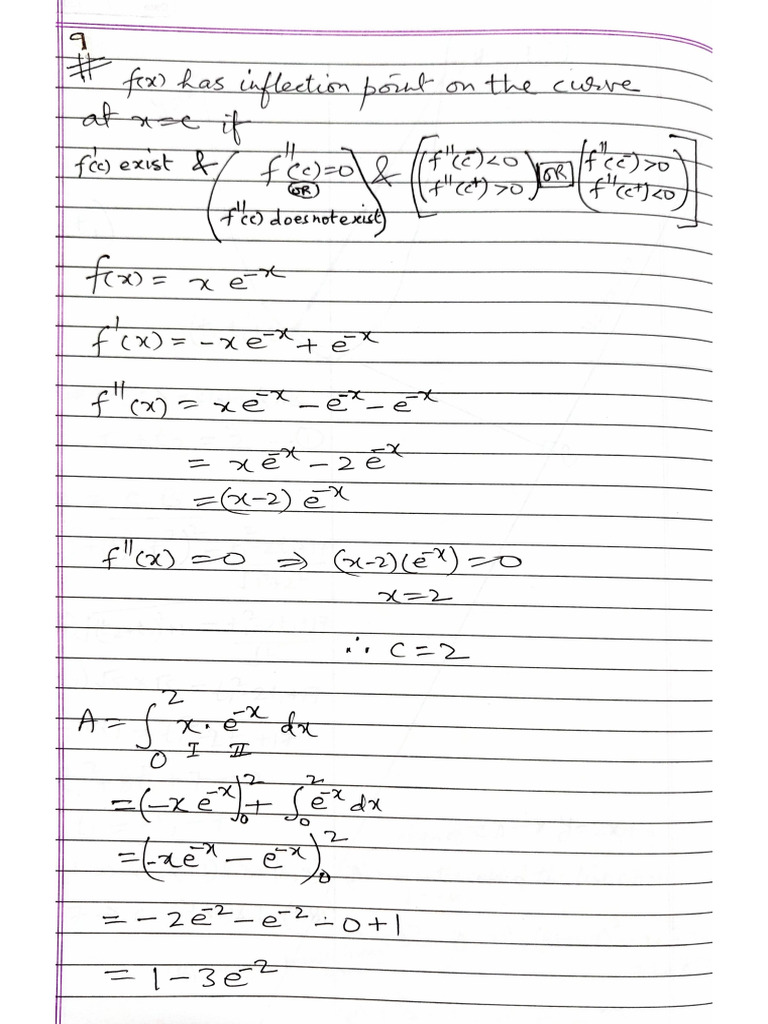 9
# f(x) has inflection point on the curve
at x=c if
f'(c) exist & (f''(c)=0 OR f''(c) does not exist) & [(f''(c⁻)<0 f''(c⁺)>0) OR (f''(c⁻)>0 f''(c⁺)<0)]
f(x) = x e^-x
f'(x) = -x e^-x + e^-x
f''(x) = x e^-x - e^-x - e^-x
= x e^-x - 2 e^-x
= (x-2) e^-x
f''(x) = 0 ⇒ (x-2)(e^-x) = 0
x = 2
∴ c = 2
A = ∫_0^2 x · e^-x dx
I II
= (-x e^-x)_0^2 + ∫_0^2 e^-x dx
= (-x e^-x - e^-x)_0^2
= -2e^-2 - e^-2 - 0 + 1
= 1 - 3e^-2